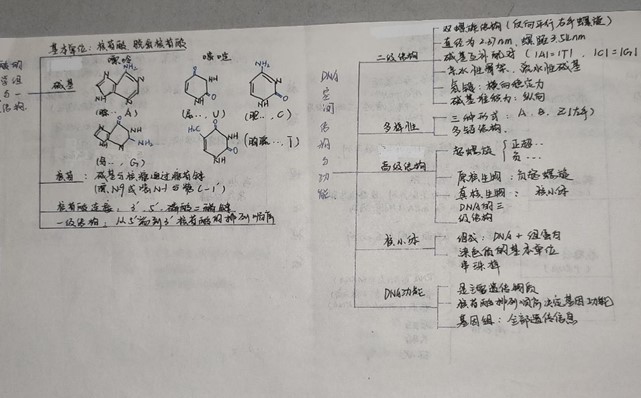 基本单位：核苷酸 脱氧核苷酸
碱基
嘌呤
嘧啶
NH₂
O
NH
NH₂
(腺…, A)
(尿…, U)
(胞…, C)
O
NH
NH₂
H₃C
O
NH
(鸟…, G)
(胸腺…, T)
核苷：碱基与核糖通过糖苷键
核苷酸连接：3′, 5′, 磷酸二酯键
一级结构：从5′端到3′核苷酸的排列顺序
DNA空间结构与功能
二级结构
双螺旋结构 (反向平行右手螺旋)
直径为2.37nm, 螺距3.54nm
碱基互补配对 (|A|=|T|, |C|=|G|)
亲水性骨架, 疏水性碱基
氢键：横向稳定力
碱基堆积力：纵向
多样性
三种形式：A、B、Z(左手)
多链结构.
高级结构
超螺旋
正超…
负…
原核生物：负超螺旋
真核生物：核小体
DNA的三级结构
核小体
组成：DNA + 组蛋白
染色质的基本单位
串珠样
DNA功能
是主要遗传物质
核苷酸排列顺序决定基因功能
基因组：全部遗传信息